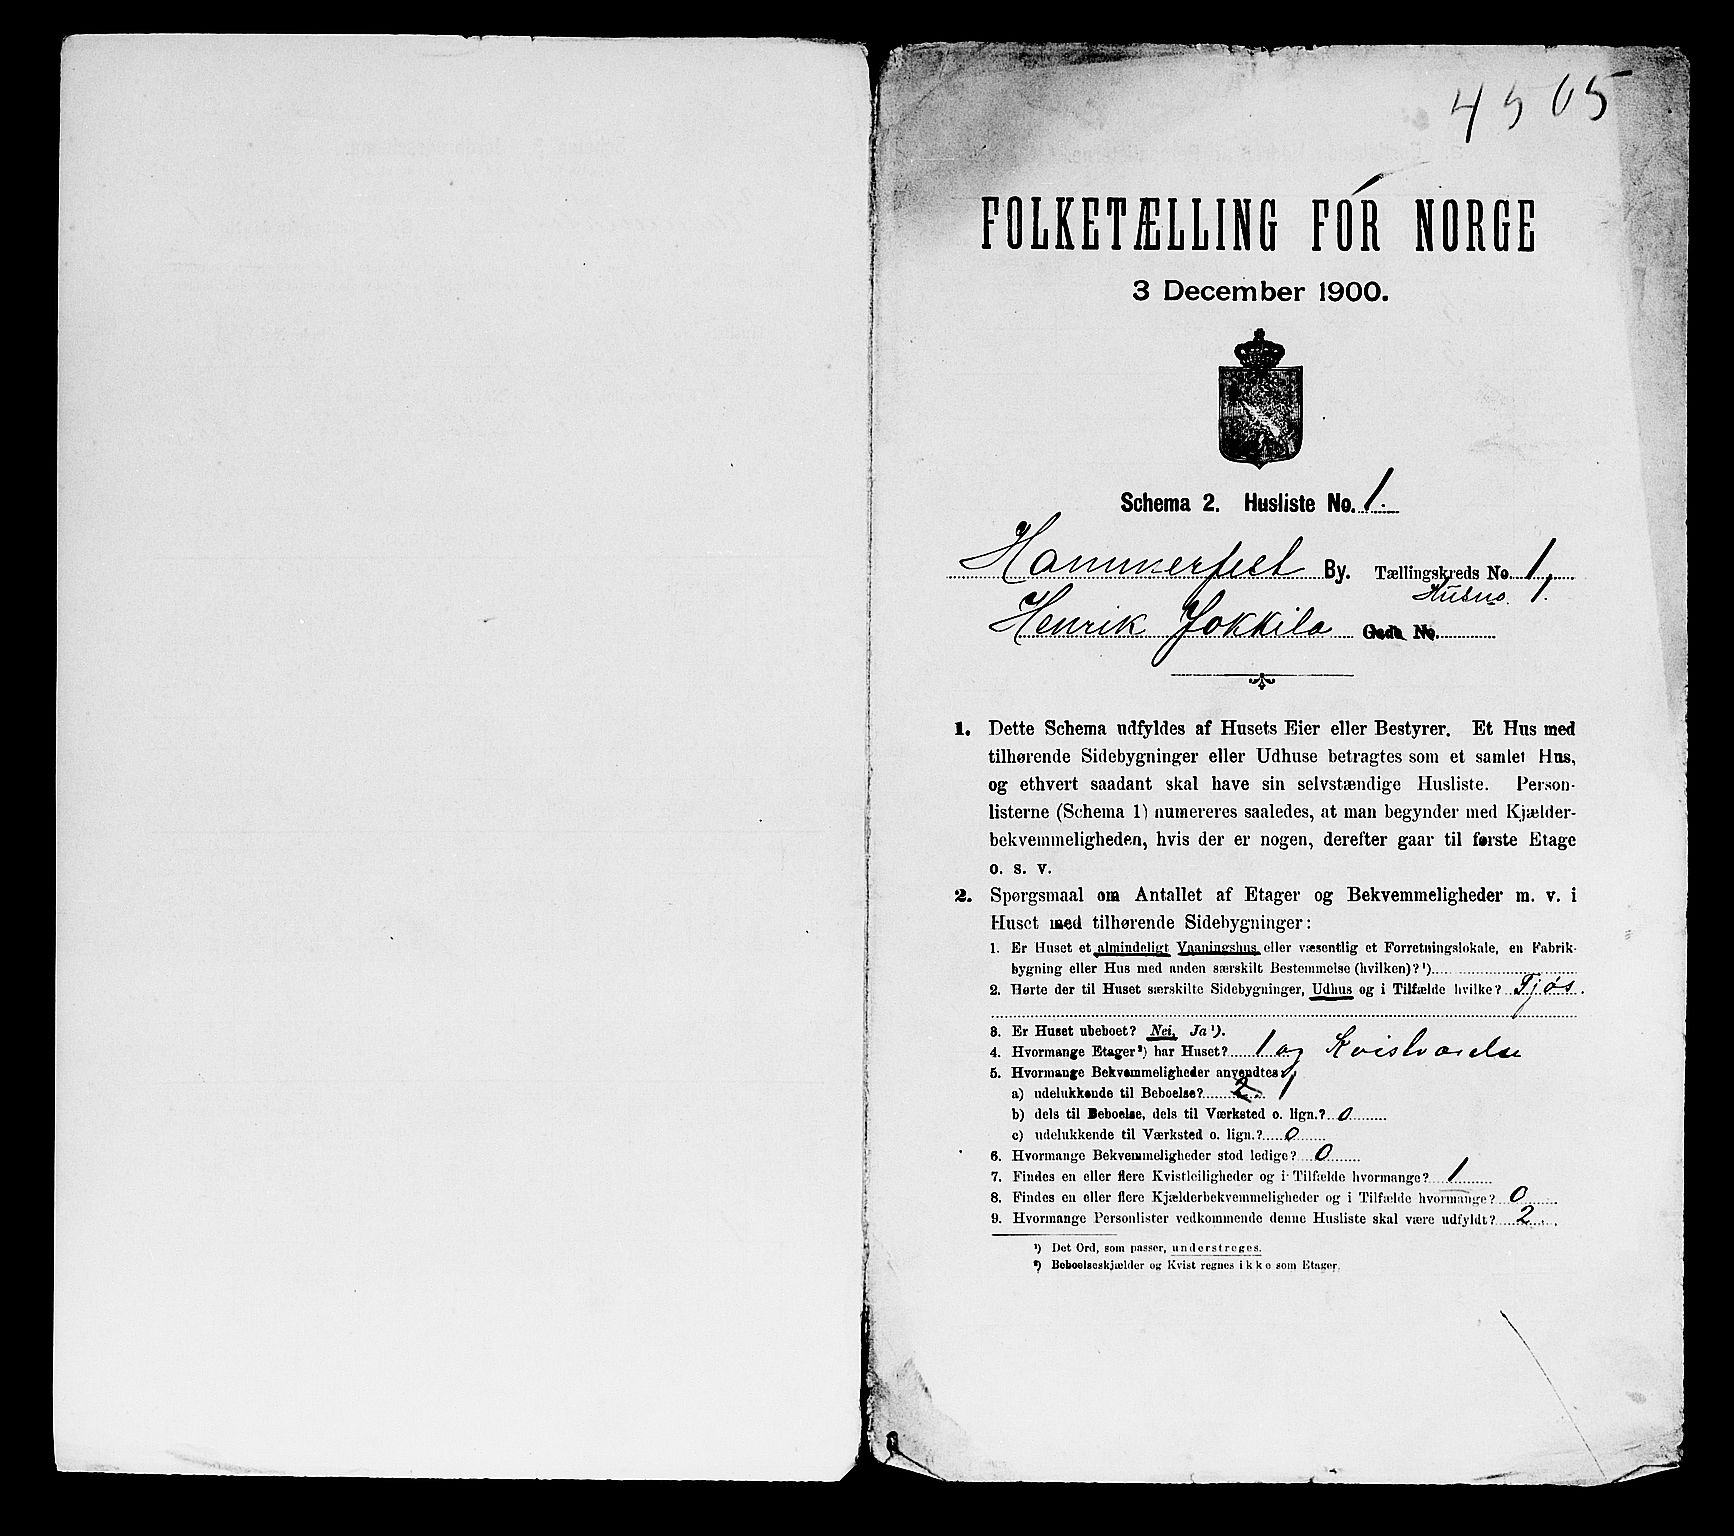 4505
FOLKETÆLLING FOR NORGE
3 December 1900.
Schema 2. Husliste No. 1.
Hammerfest By. Tællingskreds No. 1.
Husno. 1.
Henrik Jokkila Gade No.
1. Dette Schema udfyldes af Husets Eier eller Bestyrer. Et Hus med
tilhørende Sidebygninger eller Udhuse betragtes som et samlet Hus,
og ethvert saadant skal have sin selvstændige Husliste. Person-
listerne (Schema 1) numereres saaledes, at man begynder med Kjælder-
bekvemmeligheden, hvis der er nogen, derefter gaar til første Etage
o. s. v.
2. Spørgsmaal om Antallet af Etager og Bekvemmeligheder m. v. i
Huset med tilhørende Sidebygninger:
1. Er Huset et almindeligt Vaaningshus eller væsentlig et Forretningslokale, en Fabrik-
bygning eller Hus med anden særskilt Bestemmelse (hvilken)?¹)
2. Hørte der til Huset særskilte Sidebygninger, Udhus og i Tilfælde hvilke? Fjøs.
3. Er Huset ubeboet? Nei, Ja¹).
4. Hvormange Etager²) har Huset? 1 og Kvistværelse
5. Hvormange Bekvemmeligheder anvendtes
a) udelukkende til Beboelse? 2. 1
b) dels til Beboelse, dels til Værksted o. lign.? 0
c) udelukkende til Værksted o. lign.? 0
6. Hvormange Bekvemmeligheder stod ledige? 0
7. Findes en eller flere Kvistleiligheder og i Tilfælde hvormange? 1
8. Findes en eller flere Kjælderbekvemmeligheder og i Tilfælde hvormange? 0
9. Hvormange Personlister vedkommende denne Husliste skal være udfyldt? 2.
¹) Det Ord, som passer, understreges.
²) Beboelseskjælder og Kvist regnes ikke som Etager.